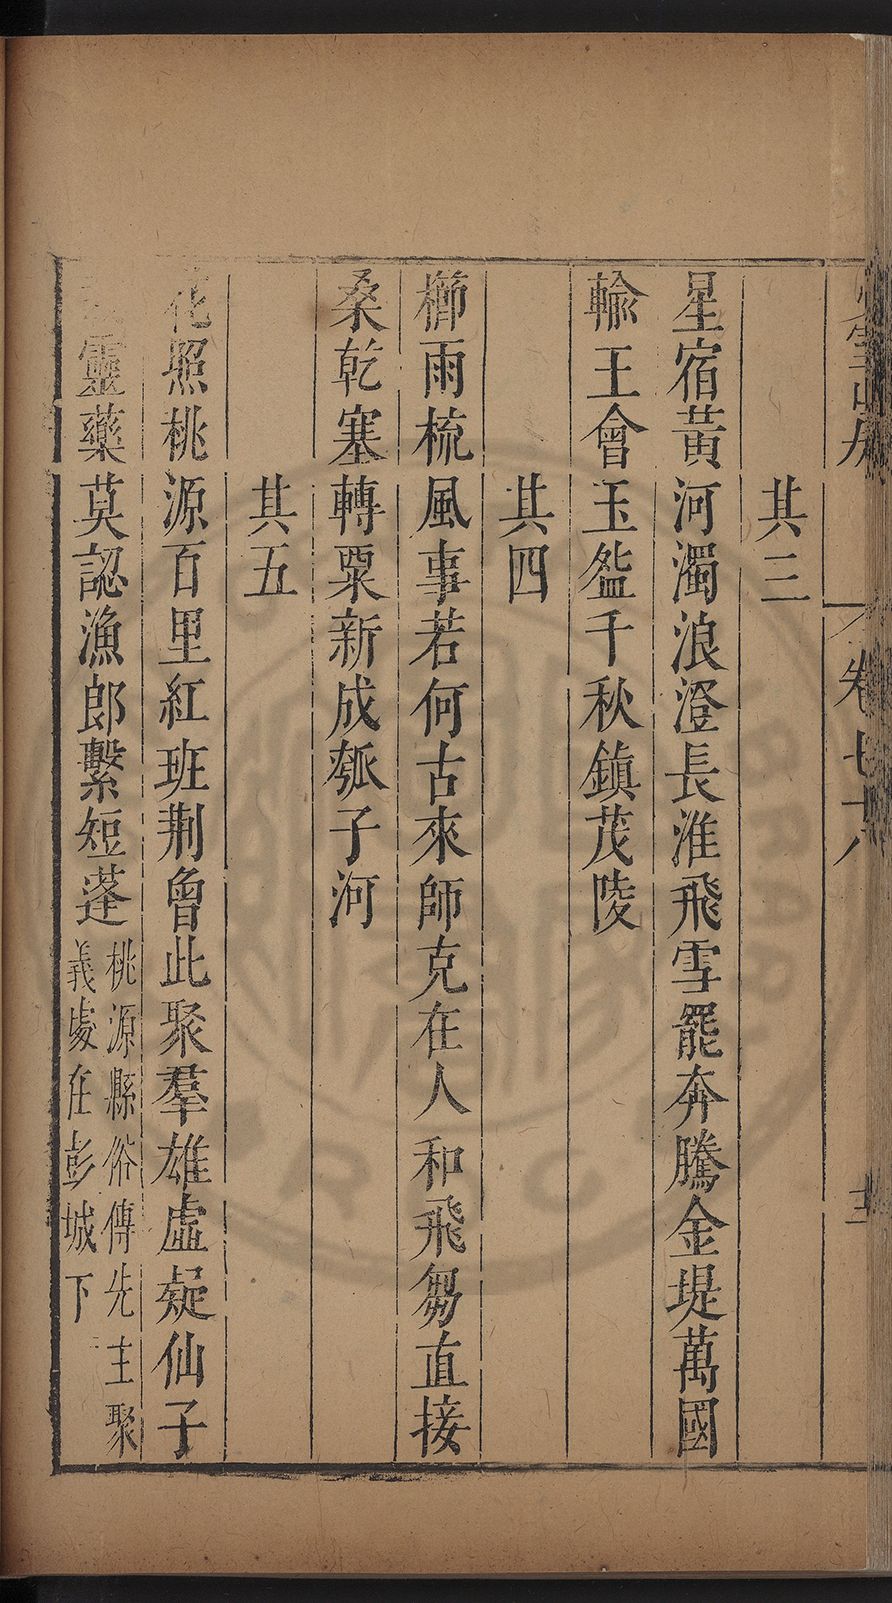 卷七十八
其三
星宿黃河濁浪澄長淮飛雪罷奔騰金堤萬國
輸王會玉盌千秋鎮茂陵
其四
櫛雨梳風事若何古來師克在人和飛芻直接
桑乾塞轉粟新成瓠子河
其五
花照桃源百里紅班荆曾此聚羣雄虛疑仙子
靈藥莫認漁郎繫短蓬
桃源縣俗傳先主聚
義處在彭城下